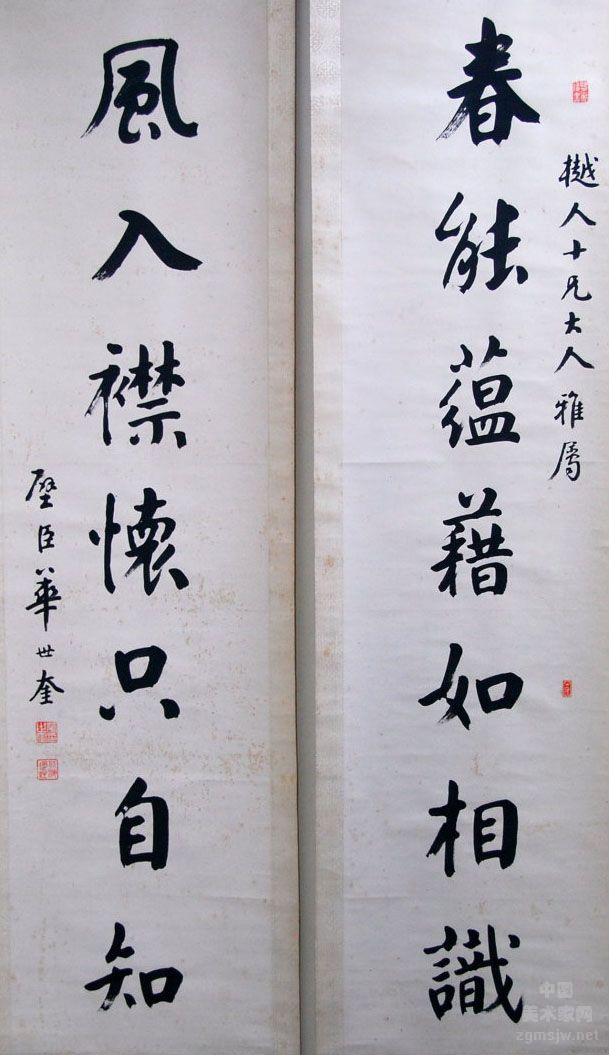 樾人十兄大人雅属
春能蕴藉如相識
風入襟懷只自知
壁臣華世奎
中国
美术家网
zgmsjw.net